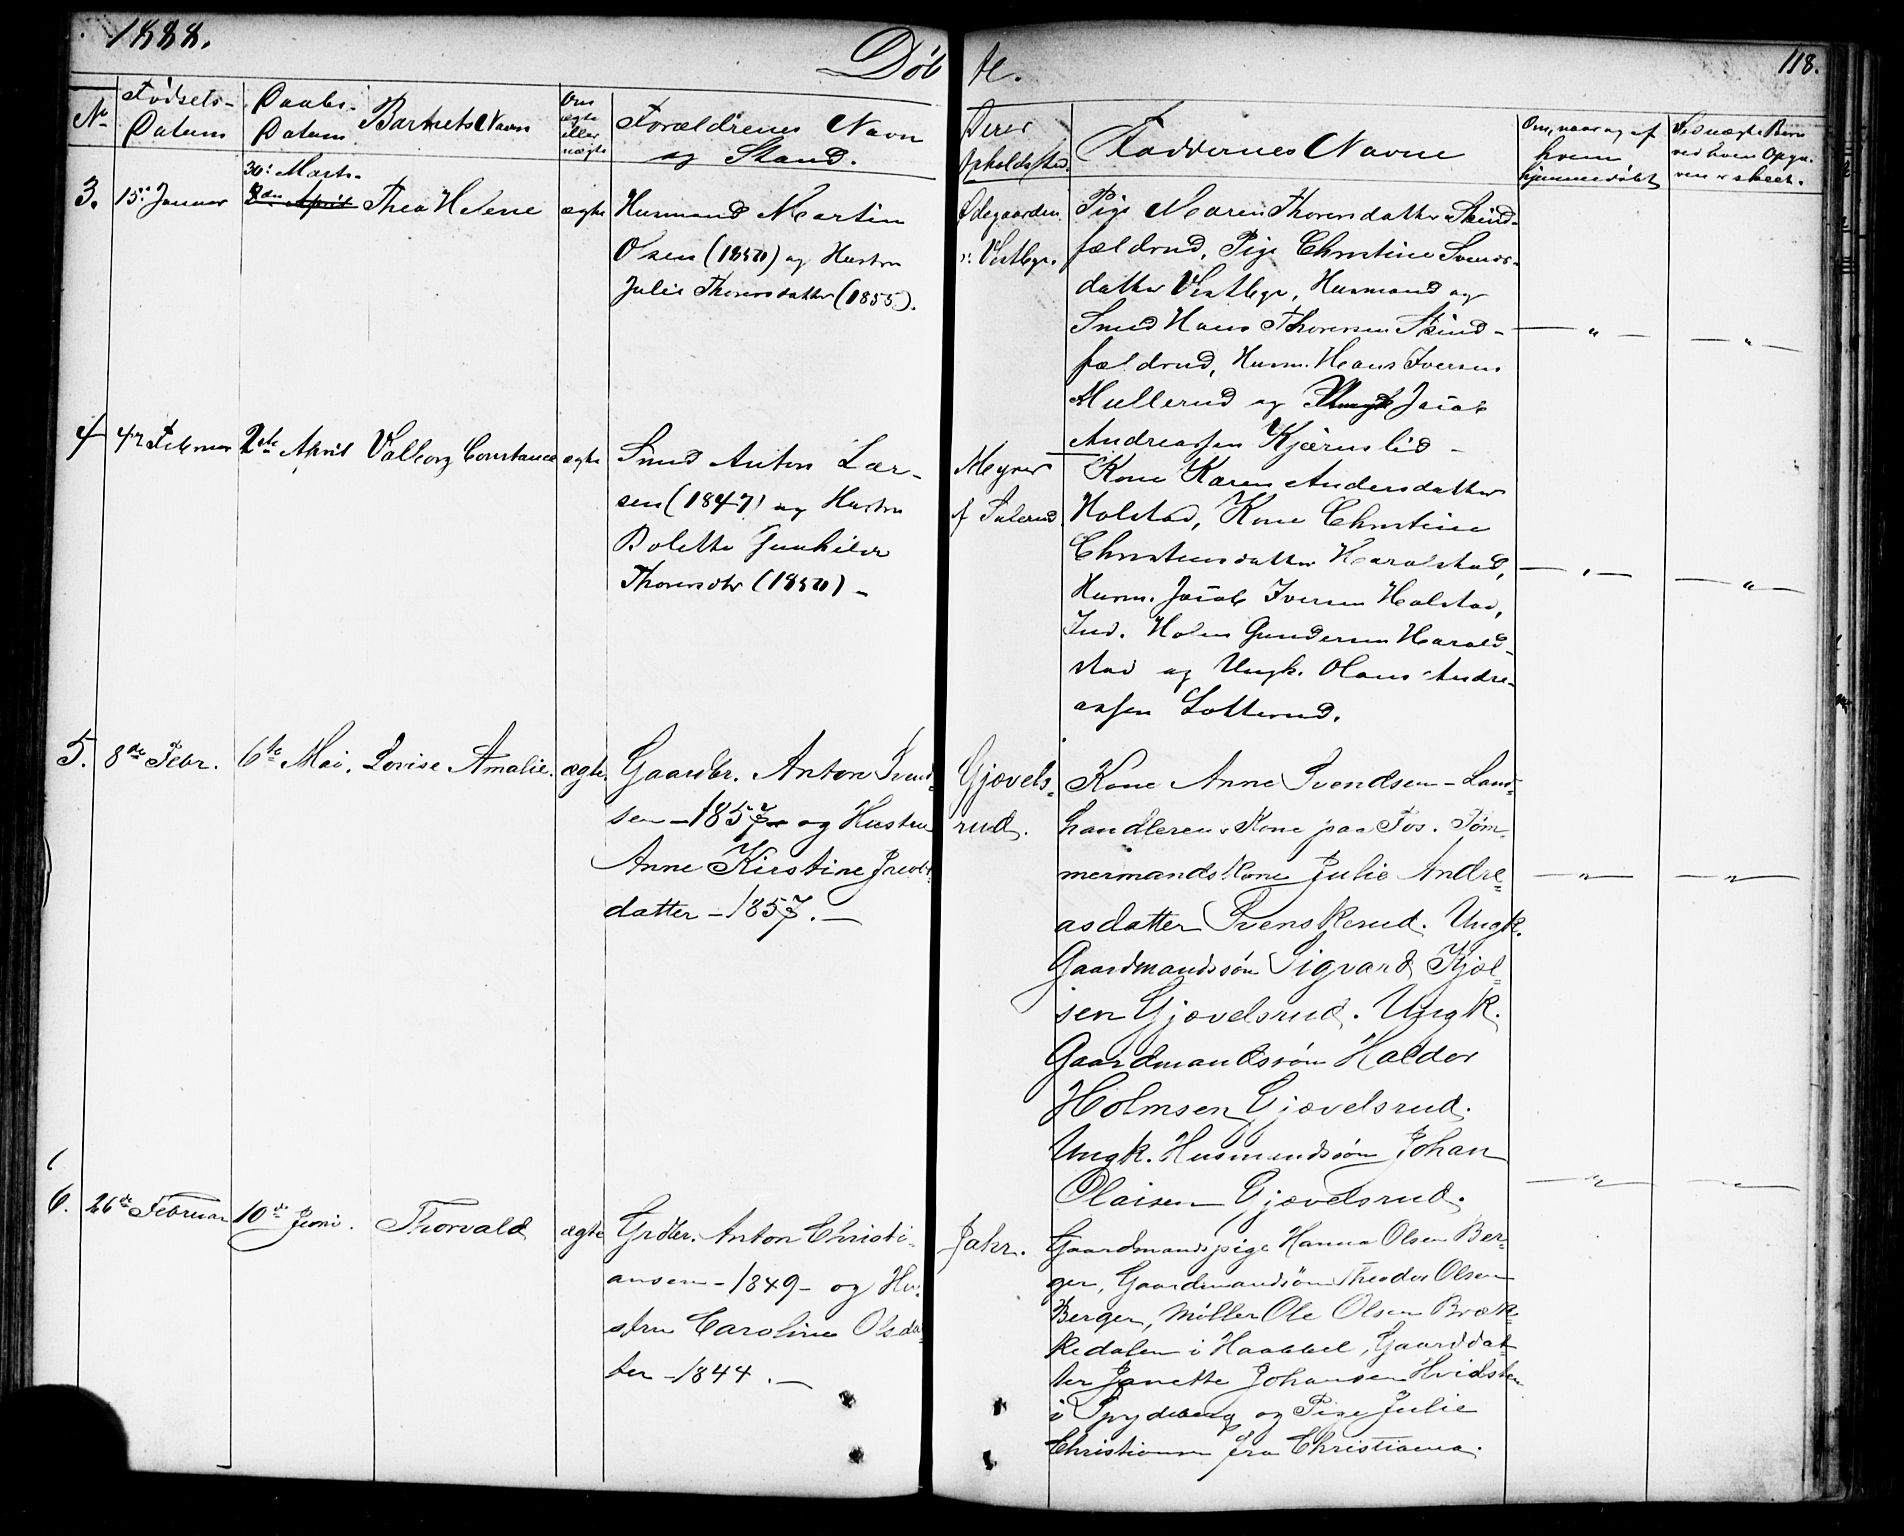 1888.
Døb
te.
118.
No
Fødsels-
Datum
Daabs-
Datum
Barnets Navn
Om
ægte
eller
uægte
Forældrenes Navn
og Stand.
Deres
Opholdssted.
Faddernes Navne
Om, naar og af
hvem
hjemmedøbt
ved hvem Opgi-
ven er skeet.
3.
15de Januar
30: Marts.
2den April
Thea Helene
ægte
Husmand Martin
Olsen (1850) og Hustru
Julie Thoresdatter (1855).
Ødegaarden
u. Vestbye.
Pige Maren Thoresdatter Skind-
fældrud, Pige Christine Svends-
datter Vestbye, Husmand og
Smed Hans Thoresen Skind-
fældrud, Husm. Hans Iversen
Mullerud og Ungk Jacob
Andreassen Kjærnslid -
4
4de Februar
2den April
Valborg Constance
ægte
Smed Anton Lar-
sen (1847) og Hustru
Bolette Gunhilde
Thoresdtr (1850) -
Meyner
Kone Karen Andersdatter
Holstad, Kone Christine
Christensdatter Haralstad,
Husm. Jacob Iversen Holstad,
Ind. Holm Gundersen Harald-
stad og Ungk. Olaus Andre-
assen Lotterud.
5.
8de Febr.
6te Mai.
Lovise Amalie.
ægte.
Gaardbr. Anton Svend-
sen - 1857 - og Hustru
Anne Kirstine Jacobs-
datter - 1857. -
Gjøvels-
rud.
Kone Anne Svendsen - Land-
handlerens Kone paa Fos. Tøm-
mermands Kone Julie Andre-
asdatter Svenskerud. Ungk.
Gaardmandssøn Sigvard Kjøl-
sen Gjøvelsrud. Ungk.
Gaardmandssøn Haldor
Holmsen Gjøvelsrud.
Ungk. Husmandssøn Johan
Olaisen Gjøvelsrud.
6.
26de Februar
10de Juni.
Thorvald
ægte
Grdbr. Anton Christi-
ansen - 1849 - og Hu-
stru Caroline Olsdat-
ter - 1844. -
Jahr.
Gaardmandspige Hanna Olsen Ber-
ger, Gaardmandsøn Theodor Olsen
Berger, Møller Ole Olsen Bræk-
kedalen i Haabbel, Gaarddat-
ter Janette Johansen Hvidsten
i Spydeberg og Pige Julie
Christiansen fra Christiania.